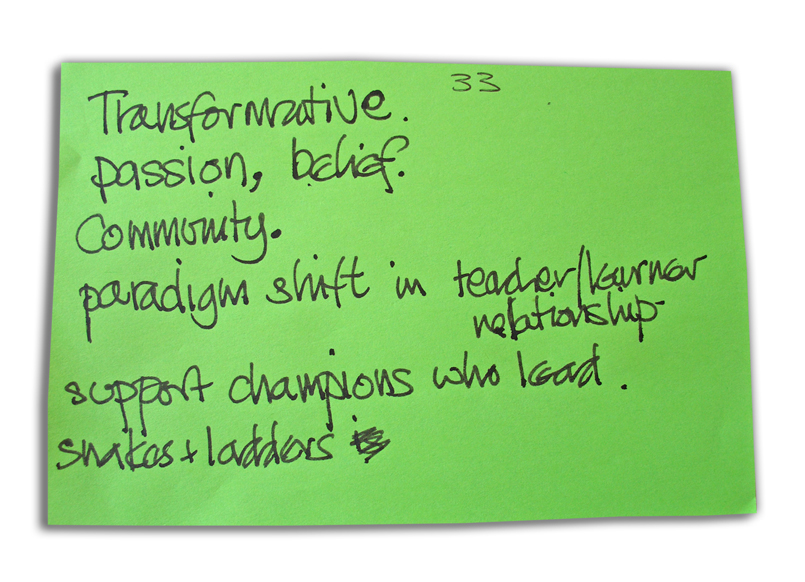 33
Transformative.
passion, belief.
Community.
paradigm shift in teacher/learner
relationship
support champions who lead.
snakes + ladders